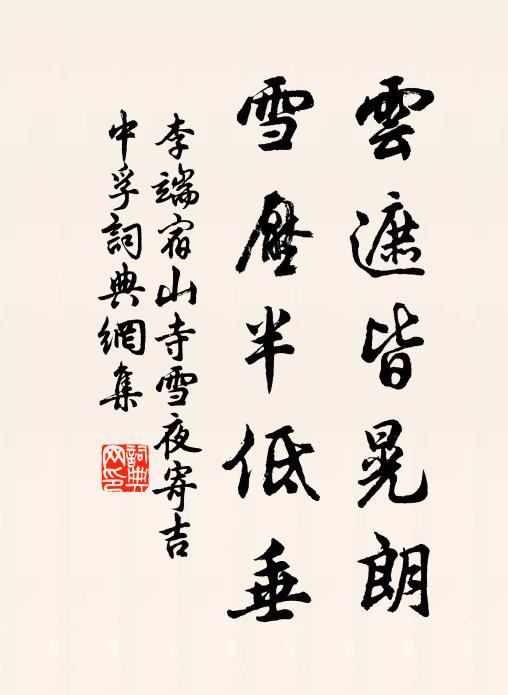 雲遮皆晃朗
雪壓半低垂
李端宿山寺雪夜寄吉
中孚詞典網集
詞典
网印